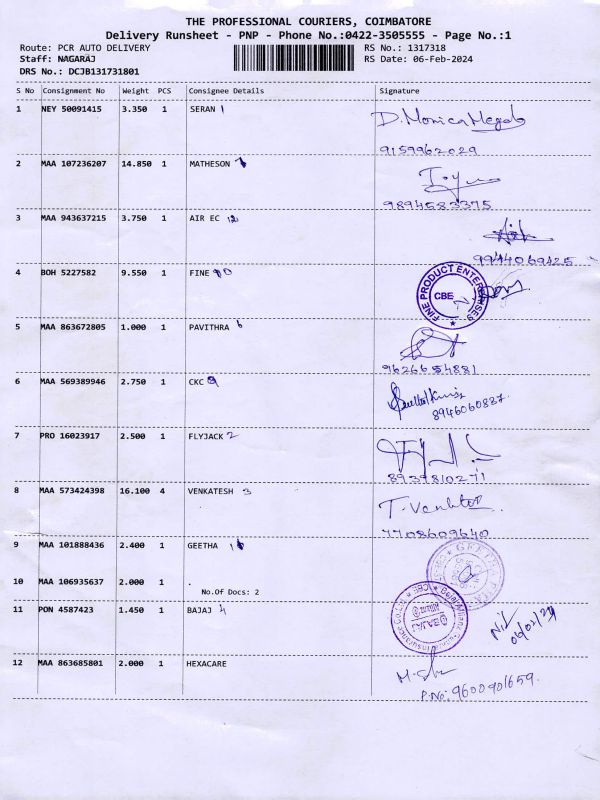 THE PROFESSIONAL COURIERS, COIMBATORE
Delivery Runsheet - PNP - Phone No.:0422-3505555 - Page No.:1
Route: PCR AUTO DELIVERY RS No.: 1317318
Staff: NAGARAJ RS Date: 06-Feb-2024
DRS No.: DCJB131731801
S No Consignment No Weight PCS Consignee Details Signature
1 NEY 50091415 3.350 1 SERAN 1 D. Monica
9159962029
2 MAA 107236207 14.850 1 MATHESON
9894583375
3 MAA 943637215 3.750 1 AIR EC 12
9944069425
4 BOH 5227582 9.550 1 FINE
FINE PRODUCT ENTERPRISES
CBE
5 MAA 863672805 1.000 1 PAVITHRA 6
9626654881
6 MAA 569389946 2.750 1 CKC
8946060837
7 PRO 16023917 2.500 1 FLYJACK 2
8939810271
8 MAA 573424398 16.100 4 VENKATESH 3 T. Venk
7708609640
9 MAA 101888436 2.400 1 GEETHA
10 MAA 106935637 2.000 1 .
No.Of Docs: 2
11 PON 4587423 1.450 1 BAJAJ 4
BAJAJ
Allianz
06/02/24
12 MAA 863685801 2.000 1 HEXACARE
P.No: 9600901659.